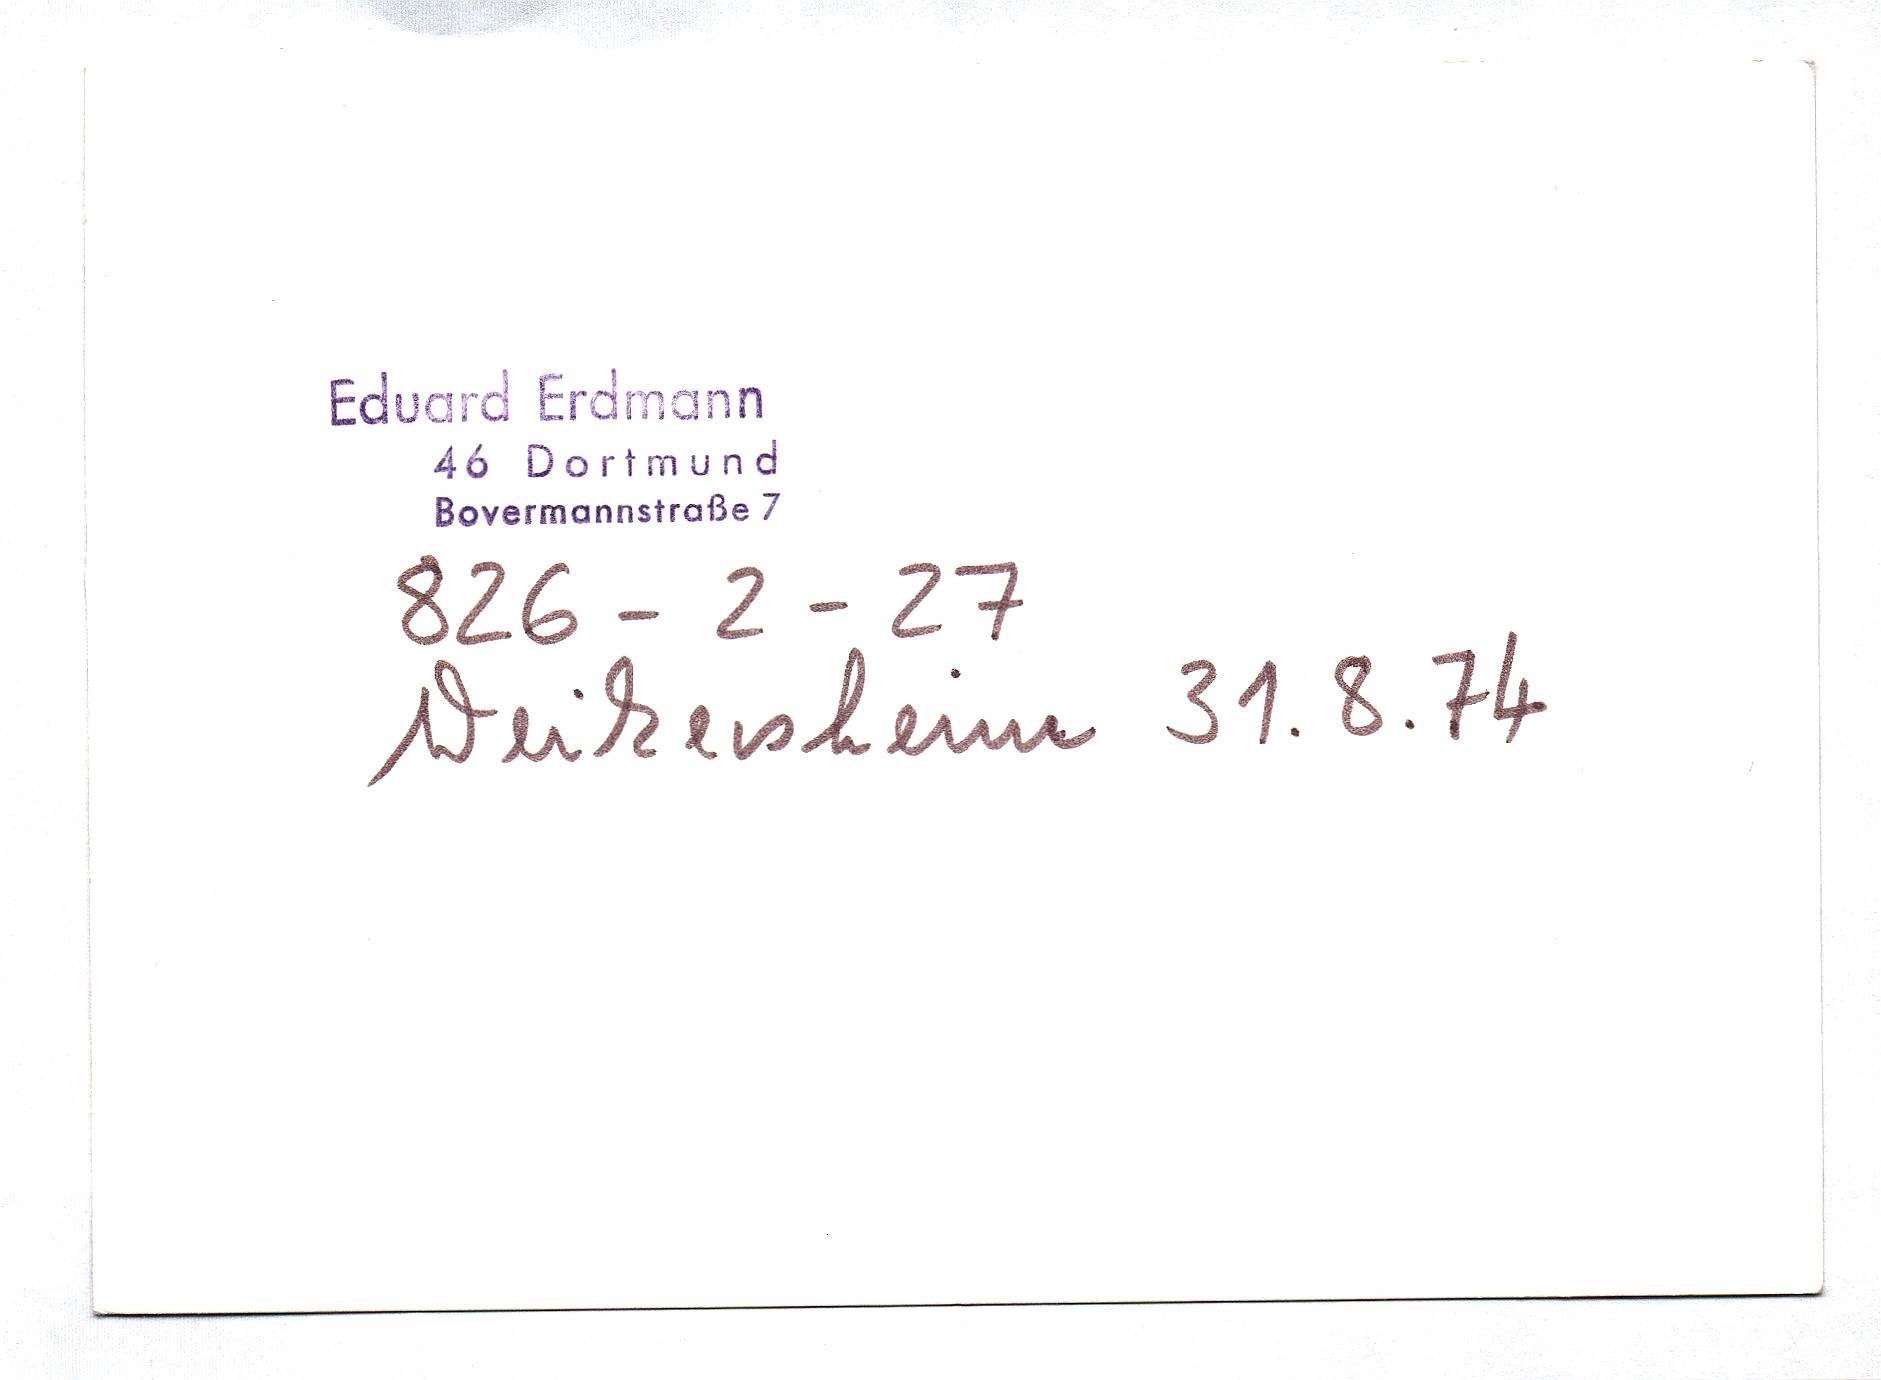 Eduard Erdmann
46 Dortmund
Bovermannstraße 7
826 - 2 - 27
Weikersheim 31.8.74